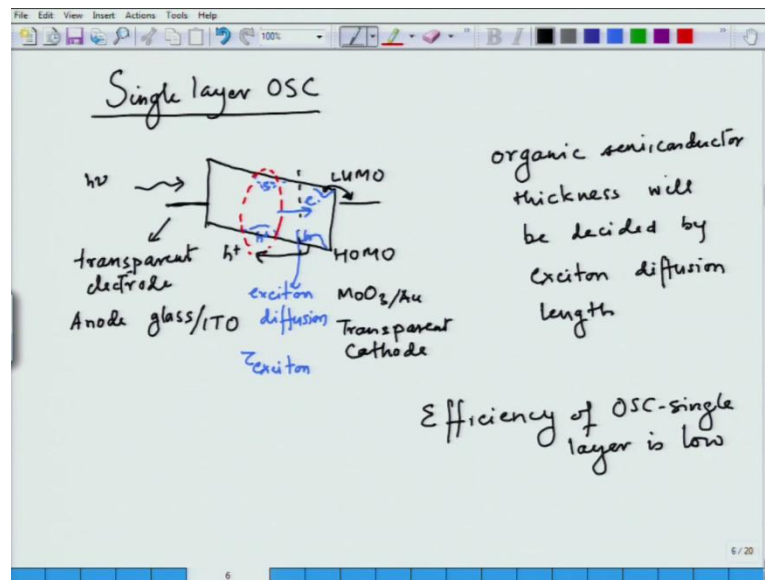 File Edit View Insert Actions Tools Help
100%
B I
Single layer OSC
hν
LUMO
e
h+
HOMO
transparent
electrode
Anode glass/ITO
exciton
diffusion
τexciton
MoO3/Au
Transparent
Cathode
organic semiconductor
thickness will
be decided by
exciton diffusion
length
Efficiency of OSC-single
layer is low
6/20
6